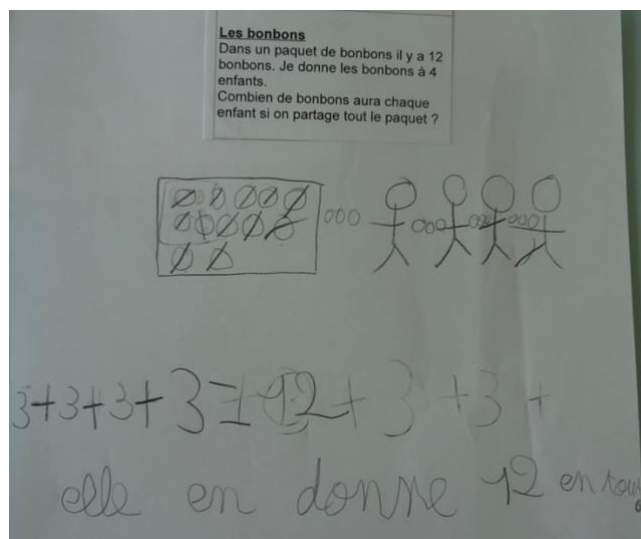 Les bonbons
Dans un paquet de bonbons il y a 12
bonbons. Je donne les bonbons à 4
enfants.
Combien de bonbons aura chaque
enfant si on partage tout le paquet ?
3+3+3+3=12+3+3+
elle en donne 12 en tou